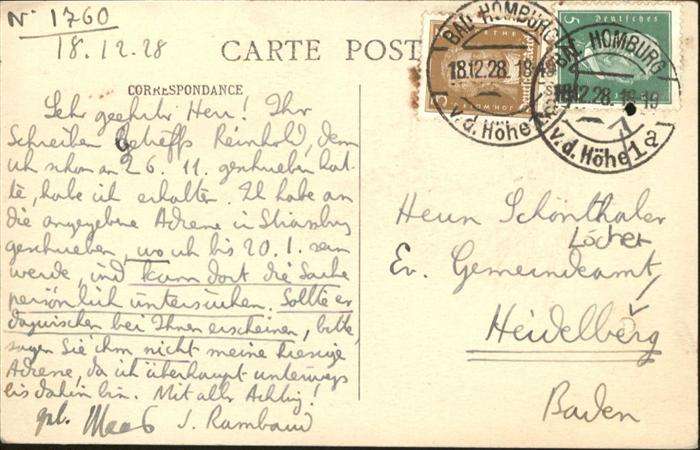 No 1760
18.12.28
CARTE POST
CORRESPONDANCE
Sehr geehrter Herr! Ihr
Schreiben betreffs Reinhold, dem
ich schon am 26. 11. geschrieben hat-
te, habe ich erhalten. Ich habe an
die angegebene Adresse in Strassburg
geschrieben, wo ich bis 20.1. sein
werde, und kann dort die Sache
persönlich untersuchen. Sollte er
dazwischen bei Ihnen erscheinen, bitte,
sagen Sie ihm nicht meine hiesige
Adresse, da ich überhaupt unterwegs
bis dahin bin. Mit aller Achtung!
J. Rambaud
BAD HOMBURG
18.12.28. 18-19
v.d. Höhe
5
Deutsches
BAD HOMBURG
18.12.28. 18-19
v.d. Höhe 1a
Herrn Schönthaler
Löcher
Ev. Gemeindeamt
Heidelberg
Baden